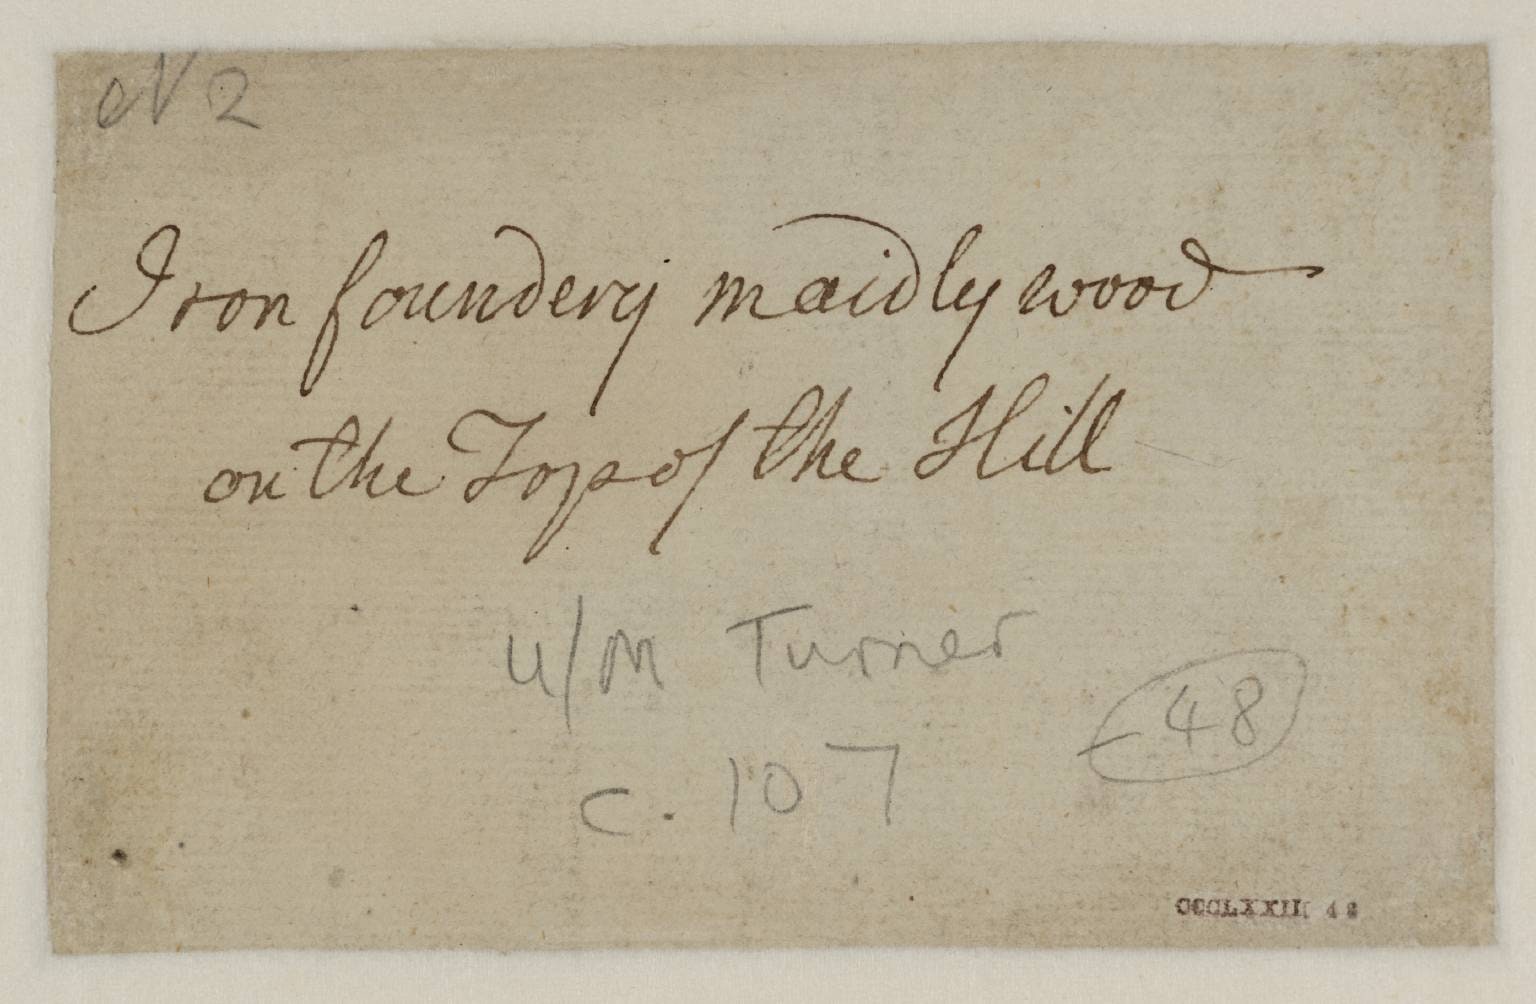 N 2
Iron foundery maidly wood
on the Top of the Hill
u/M Turner
c. 107
- 48
CCCLXXIII 48